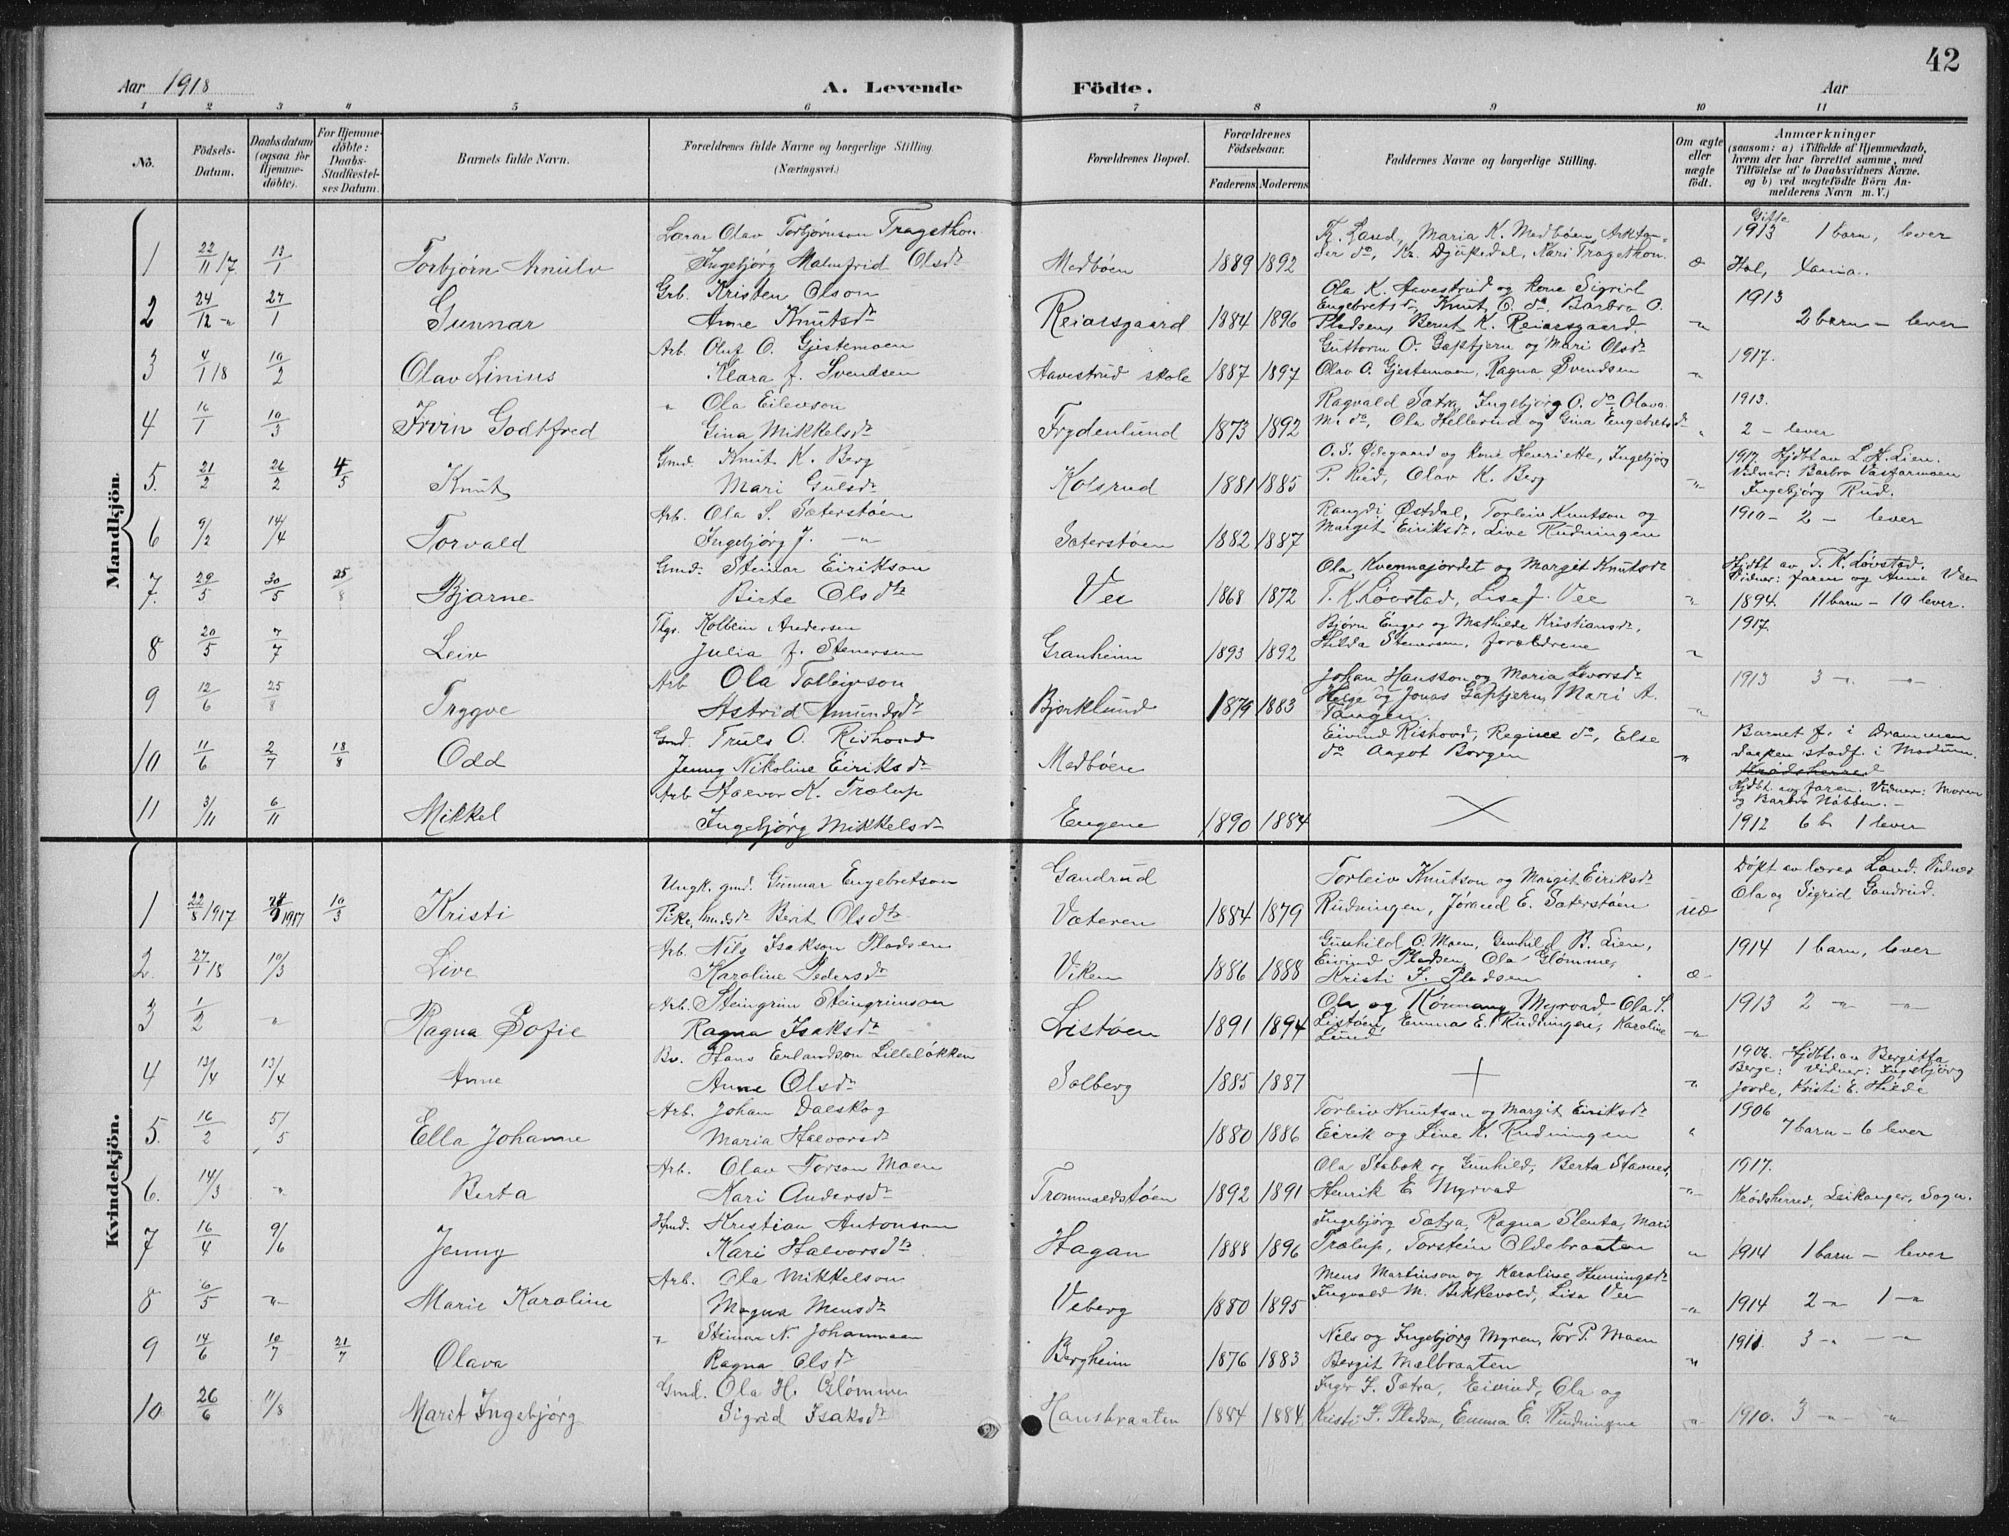 42
Aar 1918 A. Levende Födte. Aar
1 2 3 4 5 6 7 8 9 10 11
No.
Födsels-Datum.
Daabsdatum (ogsaa for Hjemme-döbte).
For Hjemme-döbte: Daabs-Stadfæstel-ses Datum.
Barnets fulde Navn.
Forældrenes fulde Navne og borgerlige Stilling. (Næringsvei.)
Forældrenes Bopæl.
Forældrenes Födselsaar.
Faderens Moderens
Faddernes Navne og borgerlige Stilling.
Om ægte eller uægte födt.
Anmærkninger
(saasom: a) i Tilfælde af Hjemmedaab,
hvem der har forrettet samme, med
Tilföielse af to Daabsvidners Navne.
og b) ved uægtefödte Börn An-
melderens Navn m. V.)
Mandkjön.
1 22/11 17 13/1 Torbjörn Arnulv
Lærer Olav Torbjørnson Tragethon
Ingebjörg Malmfrid Olsdr
Medböen 1889 1892
Maria K. Medböen
do, Kr. Djupedal, Kari Tragethon
Gifte
1913 1 barn, lever
Hol,
2 24/12 -"- 27/1 Gunnar
Grb. Kristen Olson
Anne Knutsdr
Reiarsgaard 1884 1896
Ola K. Havestrud og kone Sigrid
Engebretsdr, Knut O. do, Barbro O.
Pladsen, Berut K. Reiarsgaard
1913
2 barn - lever
3 4/1 18 10/2 Olav Linius
Arb. Oluf O. Gjestemoen
Klara J. Svendsen
Havestrud skole 1887 1897
Guttorm O. Gaptjern og Mari Olsdr
Olav O. Gjestemoen, Ragna Svendsen
1917.
4 16/1 10/3 Irvin Godtfred
" Ola Eilevson
Gina Mikkelsdr
Frydenlund 1873 1892
Ragvald Sætra, Ingebjörg O. do, Olava
M. do, Ola Hellerud og Gina Engebretsdr
1913.
2 - lever
5. 21/2 26/2 4/5 Knut
Gmd. Knut K. Berg
Mari Gulsdr
Kolsrud 1881 1885
O. S. Ødegaard og kone Henriette, Ingebjörg
P. Rud, Olav K. Berg
1917. Hjdbt av L. H. Lien.
Vidner: Barbro Vasfarmoen
Ingebjörg Rud.
6 9/2 14/4 Torvald
Arb. Ola S. Sæterstöen
Ingebjörg J. -"-
Sæterstöen 1882 1887
Rangdi Østdal, Torleiv Knutson og
Margit Eiriksdr, Live Rudningen
1910 - 2 - lever
7. 29/5 30/5 25/8 Bjarne
Gmd. Steinar Eirikson
Birte Olsdtr
Vee 1868 1872
Ola Kvennajordet og Margit Knutsdr
T. K. Lövstad, Lise J. Vee
Hjdbt av, T. K. Lövstad.
Vidner: faren og Anne Vee
1894. 11 barn - 10 lever.
8 20/5 7/7 Leiv
Tlgr. Kolbein Andersen
Julia J. Stenersen
Granheim 1893 1892
Björn Enger og Mathilde Kristiansdr,
Hilda Stenersen, forældrene
1917.
9 12/6 25/8 Trygve
Arb Ola Tolleivson
Astrid Amundsdr
Bjørklund 1879 1883
Johan Hansson og Maria Levorsdr
Helge og Jonas Gaptjern, Mari A.
Tangen.
1913 3 -"- -"-
10 11/6 2/7 18/8 Odd
Gmd. Truls O. Rishovd
Jenny Nikoline Eiriksdr
Medböen
Eivind Rishovd, Regine do, Else
do Aagot Borgen
Barnet f. i Drammen
Daapen stadf. i Modum.
11 3/11 6/11 Mikkel
Arb Halvor K. Trælup
Ingebjörg Mikkelsdr
Engene 1890 1884
Hjdbt av faren. Vidner: Moren
og Barbro Nöbben. -
1912 6 b 1 lever
Kvindekjön.
1 22/8 1917 1917 10/3 Kristi
Ungk. gmd. Gunnar Engebretson
Pike, Berit Olsdtr
Gandrud
Væteren 1884 1879
Torleiv Knutson og Margit Eiriksdr
Rudningen, Jörand E. Sæterstöen
uæ
Döpt av lærer Land. Vidner
Ola og Sigrid Gandrud.
2. 27/1 18 10/3 Live
Arb. Nils Isakson Pladsen
Karoline Pedersdr
Viken 1886 1888
Gunhild O. Moen, Gunhild B. Lien,
Eivind Pladsen, Ola Glömme,
Kristi I. Pladsen
æ
1914 1 barn, lever
3 1/2 " Ragna Sofie
Arb. Steingrim Steingrimson
Ragna Isaksdr
Listöen 1891 1894
Ola og Myrvad, Ola S.
Listöen, Emma E. Rudningen, Karoline
Lund
1913 2 -"- -"-
4 13/4 13/4 Anne
Bv. Hans Erlandson Lilleløkken
Anne Olsdr
Solberg 1885 1887
1906. Hjdbt. av Bergitta
Berge: Vidner: Ingebjörg
Jorde, Kristi E. Hilde
5. 16/2 5/5 Ella Johanne
Arb. Johan Dalskog
Maria Halvorsdr
1880 1886
Torleiv Knutson og Margit Eiriksdr
Eirik og Live K. Rudningen
1906
7 barn - 6 lever
6. 14/3 " Berta
Arb. Olav Torson Moen
Kari Andersdr
Trommaldstöen 1892 1891
Ola Stabok og Gunhild, Berta Stavnes,
Henrik E Myrvad
1917.
Krödsherred, Leikanger, Sogn.
7 16/4 9/6 Jenny
Hmd. Kristian Antonson
Kari Halvorsdtr
Hagan 1888 1896
Ingebjörg Sætra, Ragna Slenta, Mari
Trælup, Torstein Oldebraaten
1914 1 barn - lever
8 6/5 -"- Marie Karoline
Arb. Ola Mikkelson
Magna Mensdr
Veberg 1880 1895
Mens Martinson og Karoline Henningsdr
Ingvald M. Bekkevold, Lisa Vee
1914 2 -"- 1 -"-
9 14/6 10/7 21/7 Olava
" Steinar N. Johannesen
Ragna Olsdr
Bergheim 1876 1883
Nils og Ingebjörg Myren, Tor P. Moen
Bergit Mælbraaten
1911 3 -"- -"-
10 26/6 11/8 Marit Ingebjörg
Gmd. Ola H. Glömme
Sigrid Isaksdr
Hansbraaten 1884 1884
Inger I. Sætra, Eivind, Ola og
Kristi I. Pladsen, Emma E. Rudningen
1910. 3 -"- "